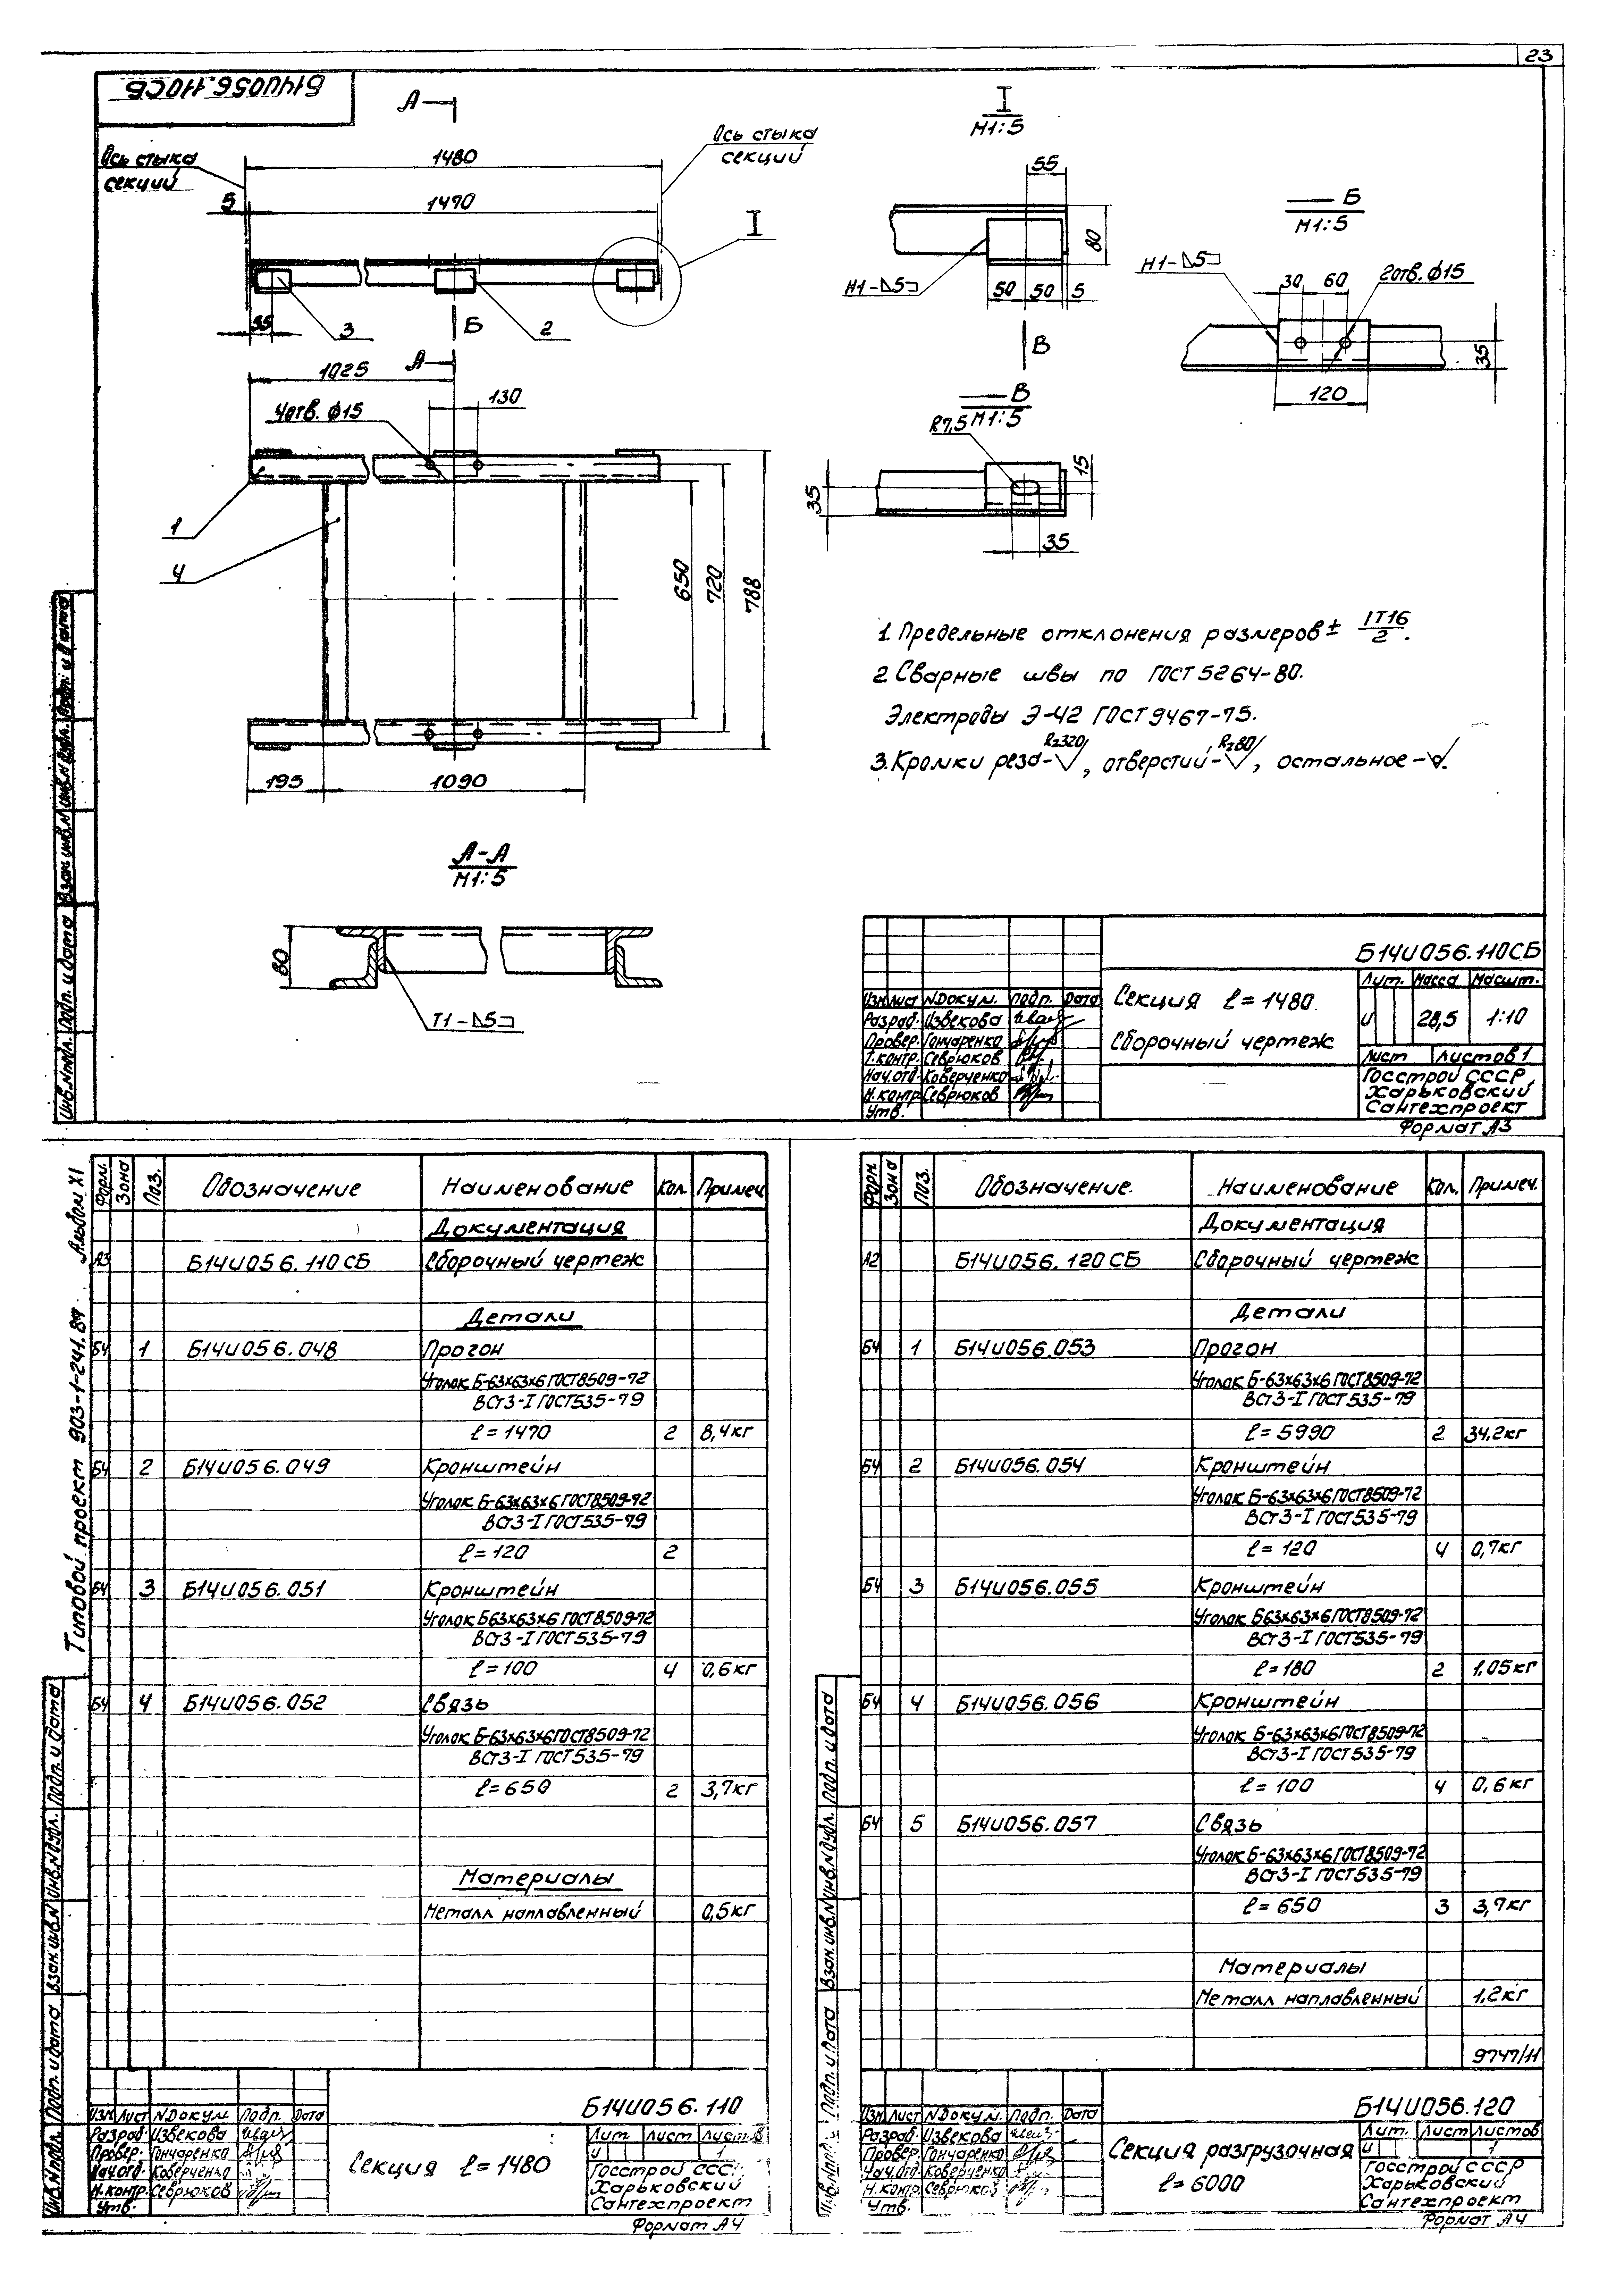 23
Б14И056.110СБ
А
Ось стыка
секций
1480
Ось стыка
секций
5
1470
I
55
3
Б
2
I
М1:5
55
80
Н1-⊿5⊐
50
50
5
В
Б
М1:5
Н1-⊿5⊐
30
60
2отв. ϕ15
35
120
1025
А
4отв. ϕ15
130
1
4
650
720
788
195
1090
В
М1:5
R7,5
15
35
35
1. Предельные отклонения размеров ± IT16/2.
2. Сварные швы по ГОСТ 5264-80.
Электроды Э-42 ГОСТ 9467-75.
3. Кромки реза - Rz320, отверстий - Rz80, остальное -
А-А
М1:5
80
Т1-⊿5⊐
Б14И056.110СБ
Секция ℓ=1480
Сборочный чертеж
Лит. Масса Масшт.
И 28,5 1:10
Лист Листов 1
Госстрой СССР
Харьковский
Сантехпроект
Формат А3
Изм Лист №Докум. Подп. Дата
Разраб. Извекова
Провер. Гончаренко
Т.контр. Севрюков
Нач.отд. Коверченко
Н.контр. Севрюков
Утв.
Инв.№подл. Подп. и дата Взам инв.№ Инв.№дубл. Подп. и дата
Типовой проект 903-1-241.87 Альбом XI
Форм. Зона Поз. Обозначение Наименование Кол. Примеч
Документация
А3 Б14И056.110СБ Сборочный чертеж
Детали
Б4 1 Б14И056.048 Прогон
Уголок Б-63×63×6 ГОСТ8509-72
ВСт3-I ГОСТ535-79
ℓ=1470 2 8,4кг
Б4 2 Б14И056.049 Кронштейн
Уголок Б-63×63×6 ГОСТ8509-72
ВСт3-I ГОСТ535-79
ℓ=120 2
Б4 3 Б14И056.051 Кронштейн
Уголок Б63×63×6 ГОСТ8509-72
ВСт3-I ГОСТ535-79
ℓ=100 4 0,6кг
Б4 4 Б14И056.052 Связь
Уголок Б-63×63×6 ГОСТ8509-72
ВСт3-I ГОСТ535-79
ℓ=650 2 3,7кг
Материалы
Металл наплавленный 0,5кг
Б14И056.110
Изм Лист №Докум. Подп. Дата
Разраб. Извекова
Провер. Гончаренко
Нач.отд. Коверченко
Н.контр. Севрюков
Утв.
Секция ℓ=1480
Лит Лист Листов
И 1
Госстрой СССР
Харьковский
Сантехпроект
Формат А4
Инв.№подл. Подп. и дата Взам.инв.№ Инв.№дубл. Подп. и дата
Форм Зона Поз. Обозначение. Наименование Кол. Примеч.
Документация
А2 Б14И056.120СБ Сборочный чертеж
Детали
Б4 1 Б14И056.053 Прогон
Уголок Б-63×63×6 ГОСТ8509-72
ВСт3-I ГОСТ535-79
ℓ=5990 2 34,2кг
Б4 2 Б14И056.054 Кронштейн
Уголок Б-63×63×6 ГОСТ8509-72
ВСт3-I ГОСТ535-79
ℓ=120 4 0,7кг
Б4 3 Б14И056.055 Кронштейн
Уголок Б63×63×6 ГОСТ8509-72
ВСт3-I ГОСТ535-79
ℓ=180 2 1,05кг
Б4 4 Б14И056.056 Кронштейн
Уголок Б-63×63×6 ГОСТ8509-72
ВСт3-I ГОСТ535-79
ℓ=100 4 0,6кг
Б4 5 Б14И056.057 Связь
Уголок Б-63×63×6 ГОСТ8509-72
ВСт3-I ГОСТ535-79
ℓ=650 3 3,7кг
Материалы
Металл наплавленный 1,2кг
9747/11
Б14И056.120
Изм Лист №Докум. Подп. Дата
Разраб. Извекова
Провер. Гончаренко
Нач.отд. Коверченко
Н.контр. Севрюков
Утв.
Секция разгрузочная
ℓ=6000
Лит. Лист Листов
И 1
Госстрой СССР
Харьковский
Сантехпроект
Формат А4
Инв.№подл. Подп. и дата Взам.инв.№ Инв.№дубл. Подп. и дата